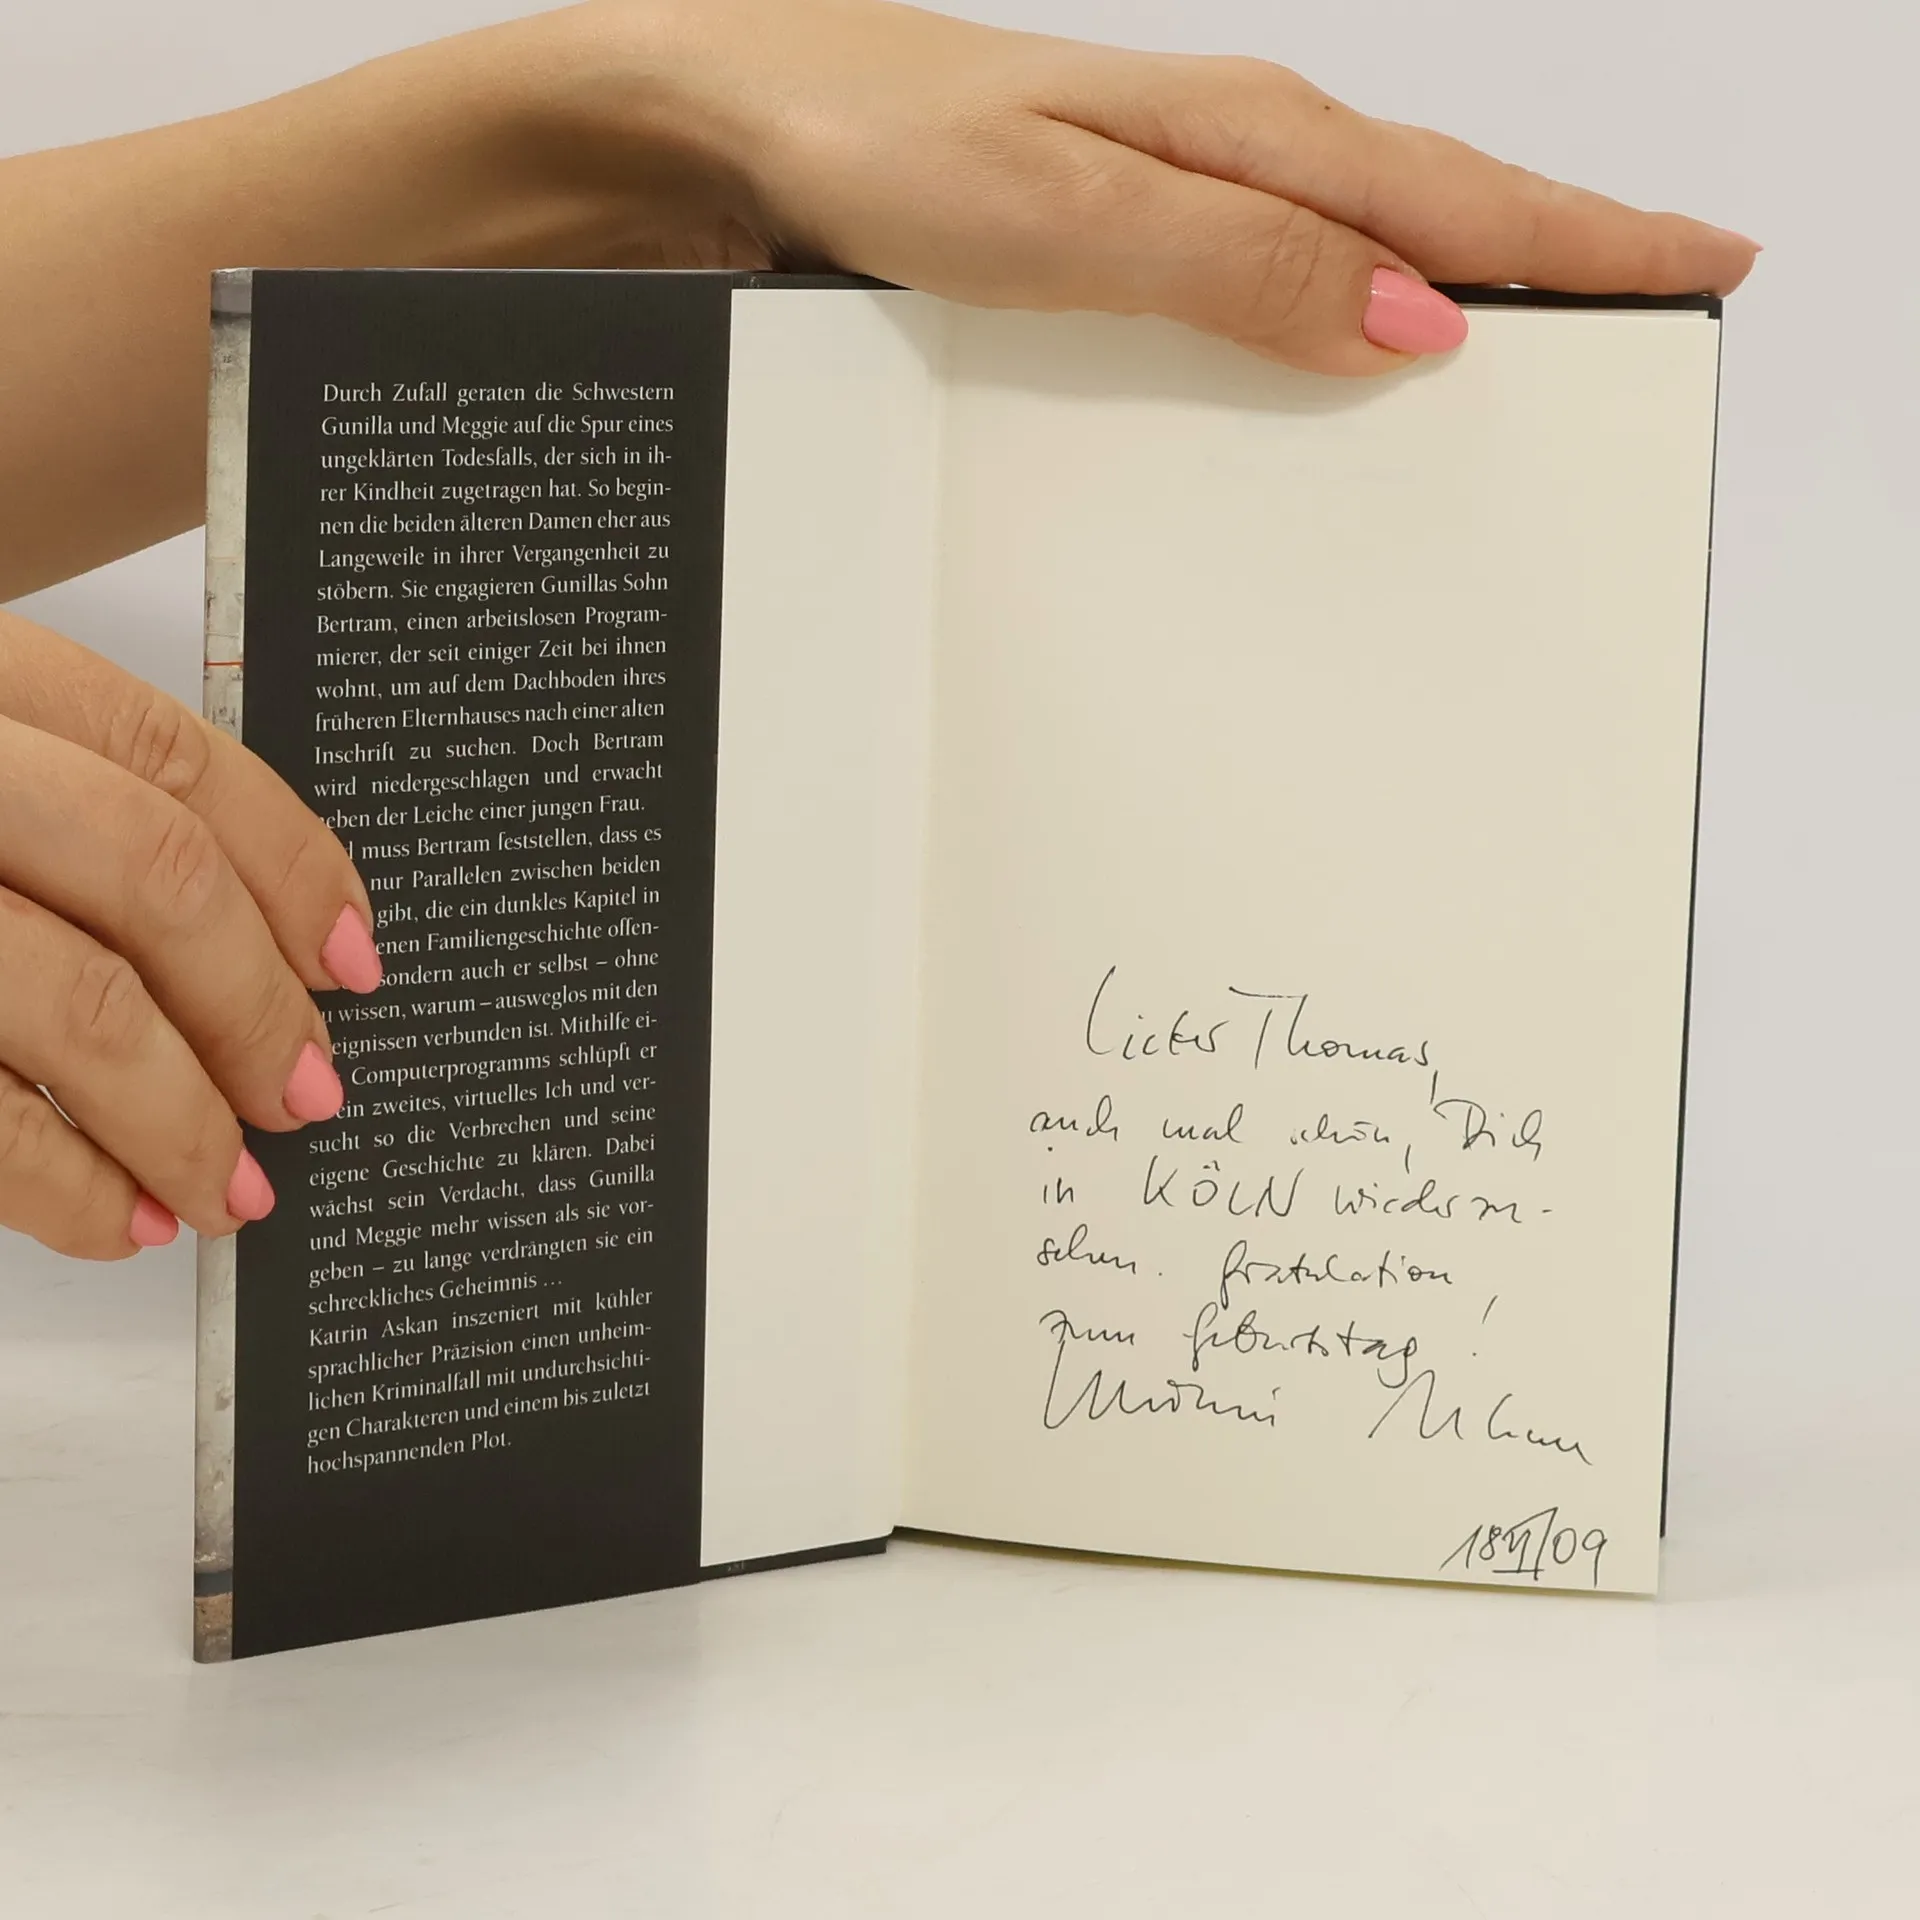 Durch Zufall geraten die Schwestern
Gunilla und Meggie auf die Spur eines
ungeklärten Todesfalls, der sich in ih-
rer Kindheit zugetragen hat. So begin-
nen die beiden älteren Damen eher aus
Langeweile in ihrer Vergangenheit zu
stöbern. Sie engagieren Gunillas Sohn
Bertram, einen arbeitslosen Program-
mierer, der seit einiger Zeit bei ihnen
wohnt, um auf dem Dachboden ihres
früheren Elternhauses nach einer alten
Inschrift zu suchen. Doch Bertram
wird niedergeschlagen und erwacht
eben der Leiche einer jungen Frau.
muss Bertram feststellen, dass es
nur Parallelen zwischen beiden
gibt, die ein dunkles Kapitel in
enen Familiengeschichte offen-
sondern auch er selbst – ohne
u wissen, warum – ausweglos mit den
eignissen verbunden ist. Mithilfe ei-
Computerprogramms schlüpft er
ein zweites, virtuelles Ich und ver-
sucht so die Verbrechen und seine
eigene Geschichte zu klären. Dabei
wächst sein Verdacht, dass Gunilla
und Meggie mehr wissen als sie vor-
geben – zu lange verdrängten sie ein
schreckliches Geheimnis ...
Katrin Askan inszeniert mit kühler
sprachlicher Präzision einen unheim-
lichen Kriminalfall mit undurchsichti-
gen Charakteren und einem bis zuletzt
hochspannenden Plot.
Lieber Thomas,
auch mal schön, Dich
in KÖLN wiederzu-
sehen. Gratulation
zum Geburtstag!
18 VI/09